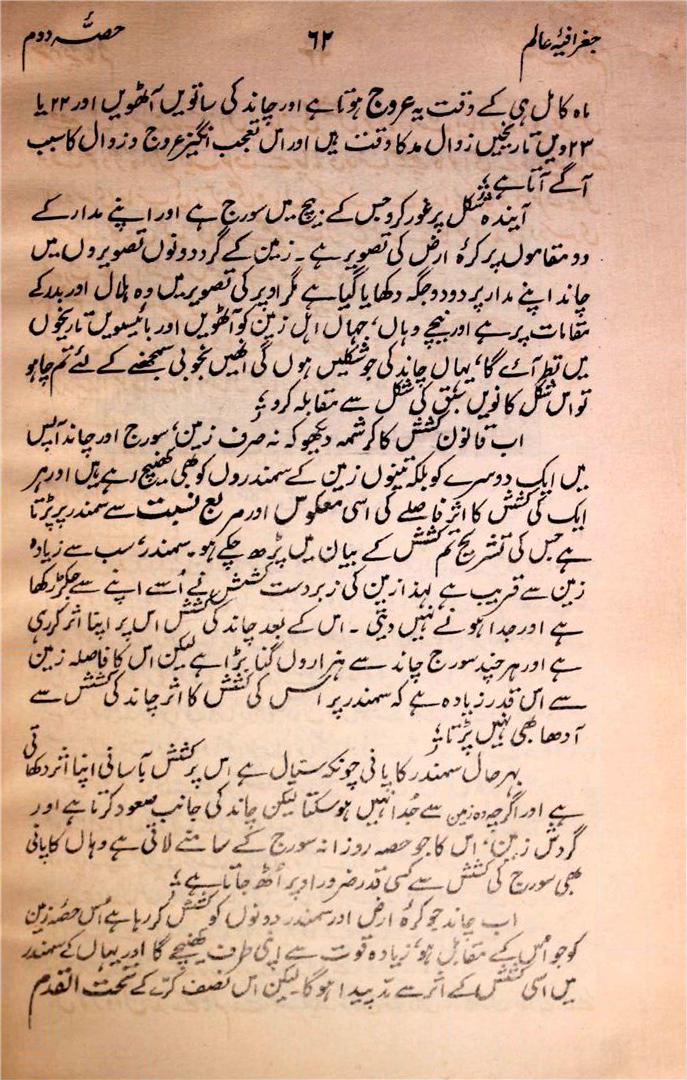 جغرافیۂ عالم ۶۲ حصّۂ دوم
ماہ کامل ہی کے وقت یہ عروج ہوتا ہے اور چاند کی ساتویں آٹھویں اور ۲۲ یا
۲۳ ویں تاریخیں زوال مد کا وقت ہیں اور اس تعجب انگیز عروج و زوال کا سبب
آگے آتا ہے؛
آیندہ شکل پر غور کرو جس کے بیچ میں سورج ہے اور اپنے مدار کے
دو مقاموں پر کرۂ ارض کی تصویر ہے۔ زمین کے گرد دونوں تصویروں میں
چاند اپنے مدار پر دو دو جگہ دکھایا گیا ہے مگر اوپر کی تصویر میں وہ ہلال اور بدر کے
مقامات پر ہے اور نیچے وہاں، جہاں اہل زمین کو آٹھویں اور بائیسویں تاریخوں
میں نظر آئے گا، یہاں چاند کی جو شکلیں ہوں گی انھیں بخوبی سمجھنے کے لئے تم چاہو
تو اس شکل کا نویں سبق کی شکل سے مقابلہ کرو؛
اب قانون کشش کا کرشمہ دیکھو کہ نہ صرف زمین، سورج اور چاند آپس
میں ایک دوسرے کو بلکہ تینوں زمین کے سمندروں کو بھی کھینچ رہے ہیں اور ہر
ایک کی کشش کا اثر فاصلے کی اسی معکوس اور مربع نسبت سے سمندر پر پڑتا
ہے جس کی تشریح تم کشش کے بیان میں پڑھ چکے ہو۔ سمندر، سب سے زیادہ
زمین سے قریب ہے لہذا زمین کی زبردست کشش نے اُسے اپنے سے جکڑ رکھا
ہے اور جدا ہونے نہیں دیتی۔ اس کے بعد چاند کی کشش اس پر اپنا اثر کر رہی
ہے اور ہر چند سورج چاند سے ہزاروں گنا بڑا ہے لیکن اس کا فاصلہ زمین
سے اس قدر زیادہ ہے کہ سمندر پر اُس کی کشش کا اثر چاند کی کشش سے
آدھا بھی نہیں پڑتا؛
بہرحال سمندر کا پانی چونکہ سیّال ہے اس پر کشش بآسانی اپنا اثر دکھاتی
ہے اور اگرچہ وہ زمین سے جُدا نہیں ہو سکتا لیکن چاند کی جانب صعود کرتا ہے اور
گردش زمین، اس کا جو حصہ روزانہ سورج کے سامنے لاتی ہے وہاں کا پانی
بھی سورج کی کشش سے کسی قدر ضرور اوپر اُٹھ جاتا ہے؛
اب چاند جو کرۂ ارض اور سمندر دونوں کو کشش کر رہا ہے اُس حصّہ زمین
کو جو اُس کے مقابل ہو، زیادہ قوت سے اپنی طرف کھینچے گا اور یہاں کے سمندر
میں اسی کشش کے اثر سے مد پیدا ہو گا۔ لیکن اس نصف کرّے کے تحت القدم